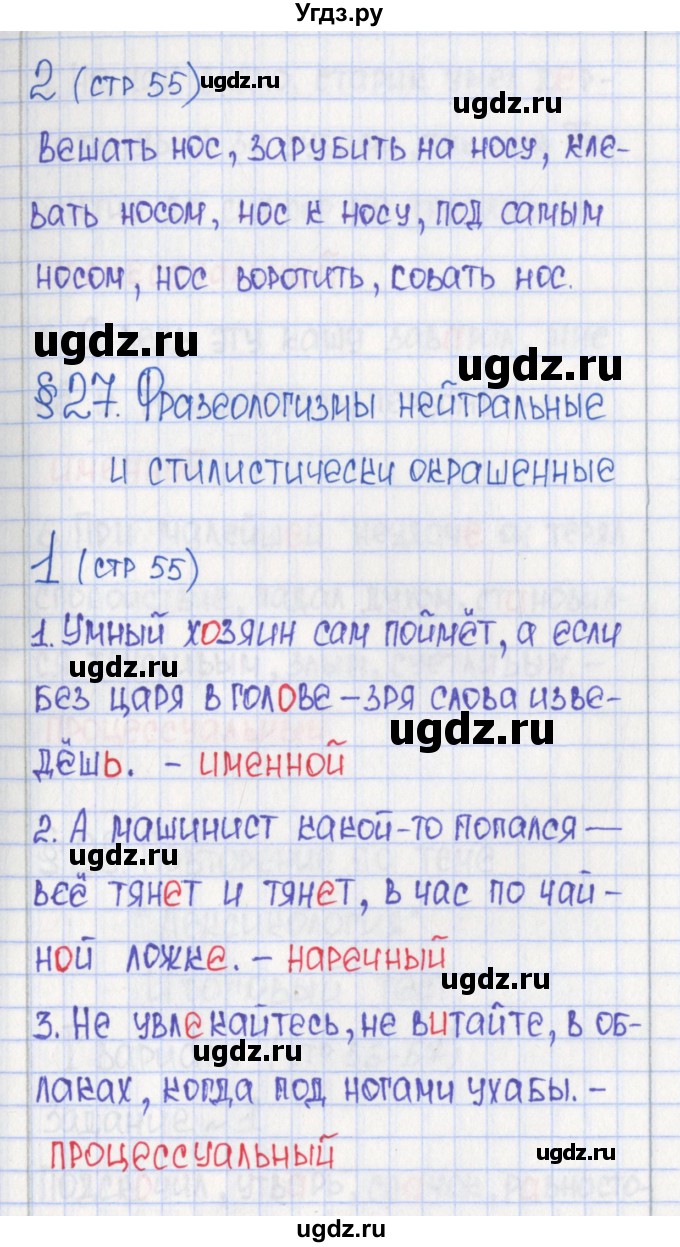 Угдз.ру
2 (стр 55) ugdz.ru
ugdz.ru
вешать нос, зарубить на носу, кле-
вать носом, нос к носу, под самым
носом, нос воротить, совать нос.
ugdz.ru
ugdz.ru
§27. Фразеологизмы нейтральные
и стилистически окрашенные
1 (стр 55)
1. Умный хозяин сам поймёт, а если
ugdz.ru
без царя в голове – зря слова изве-
ugdz.ru
дёшь. – именной
2. А машинист какой-то попался —
ugdz.ru
всё тянет и тянет, в час по чай-
ной ложке. – наречный
ugdz.ru
3. Не увлекайтесь, не витайте, в об-
ugdz.ru
лаках, когда под ногами ухабы. –
процессуальный
ugdz.ru
ugdz.ru